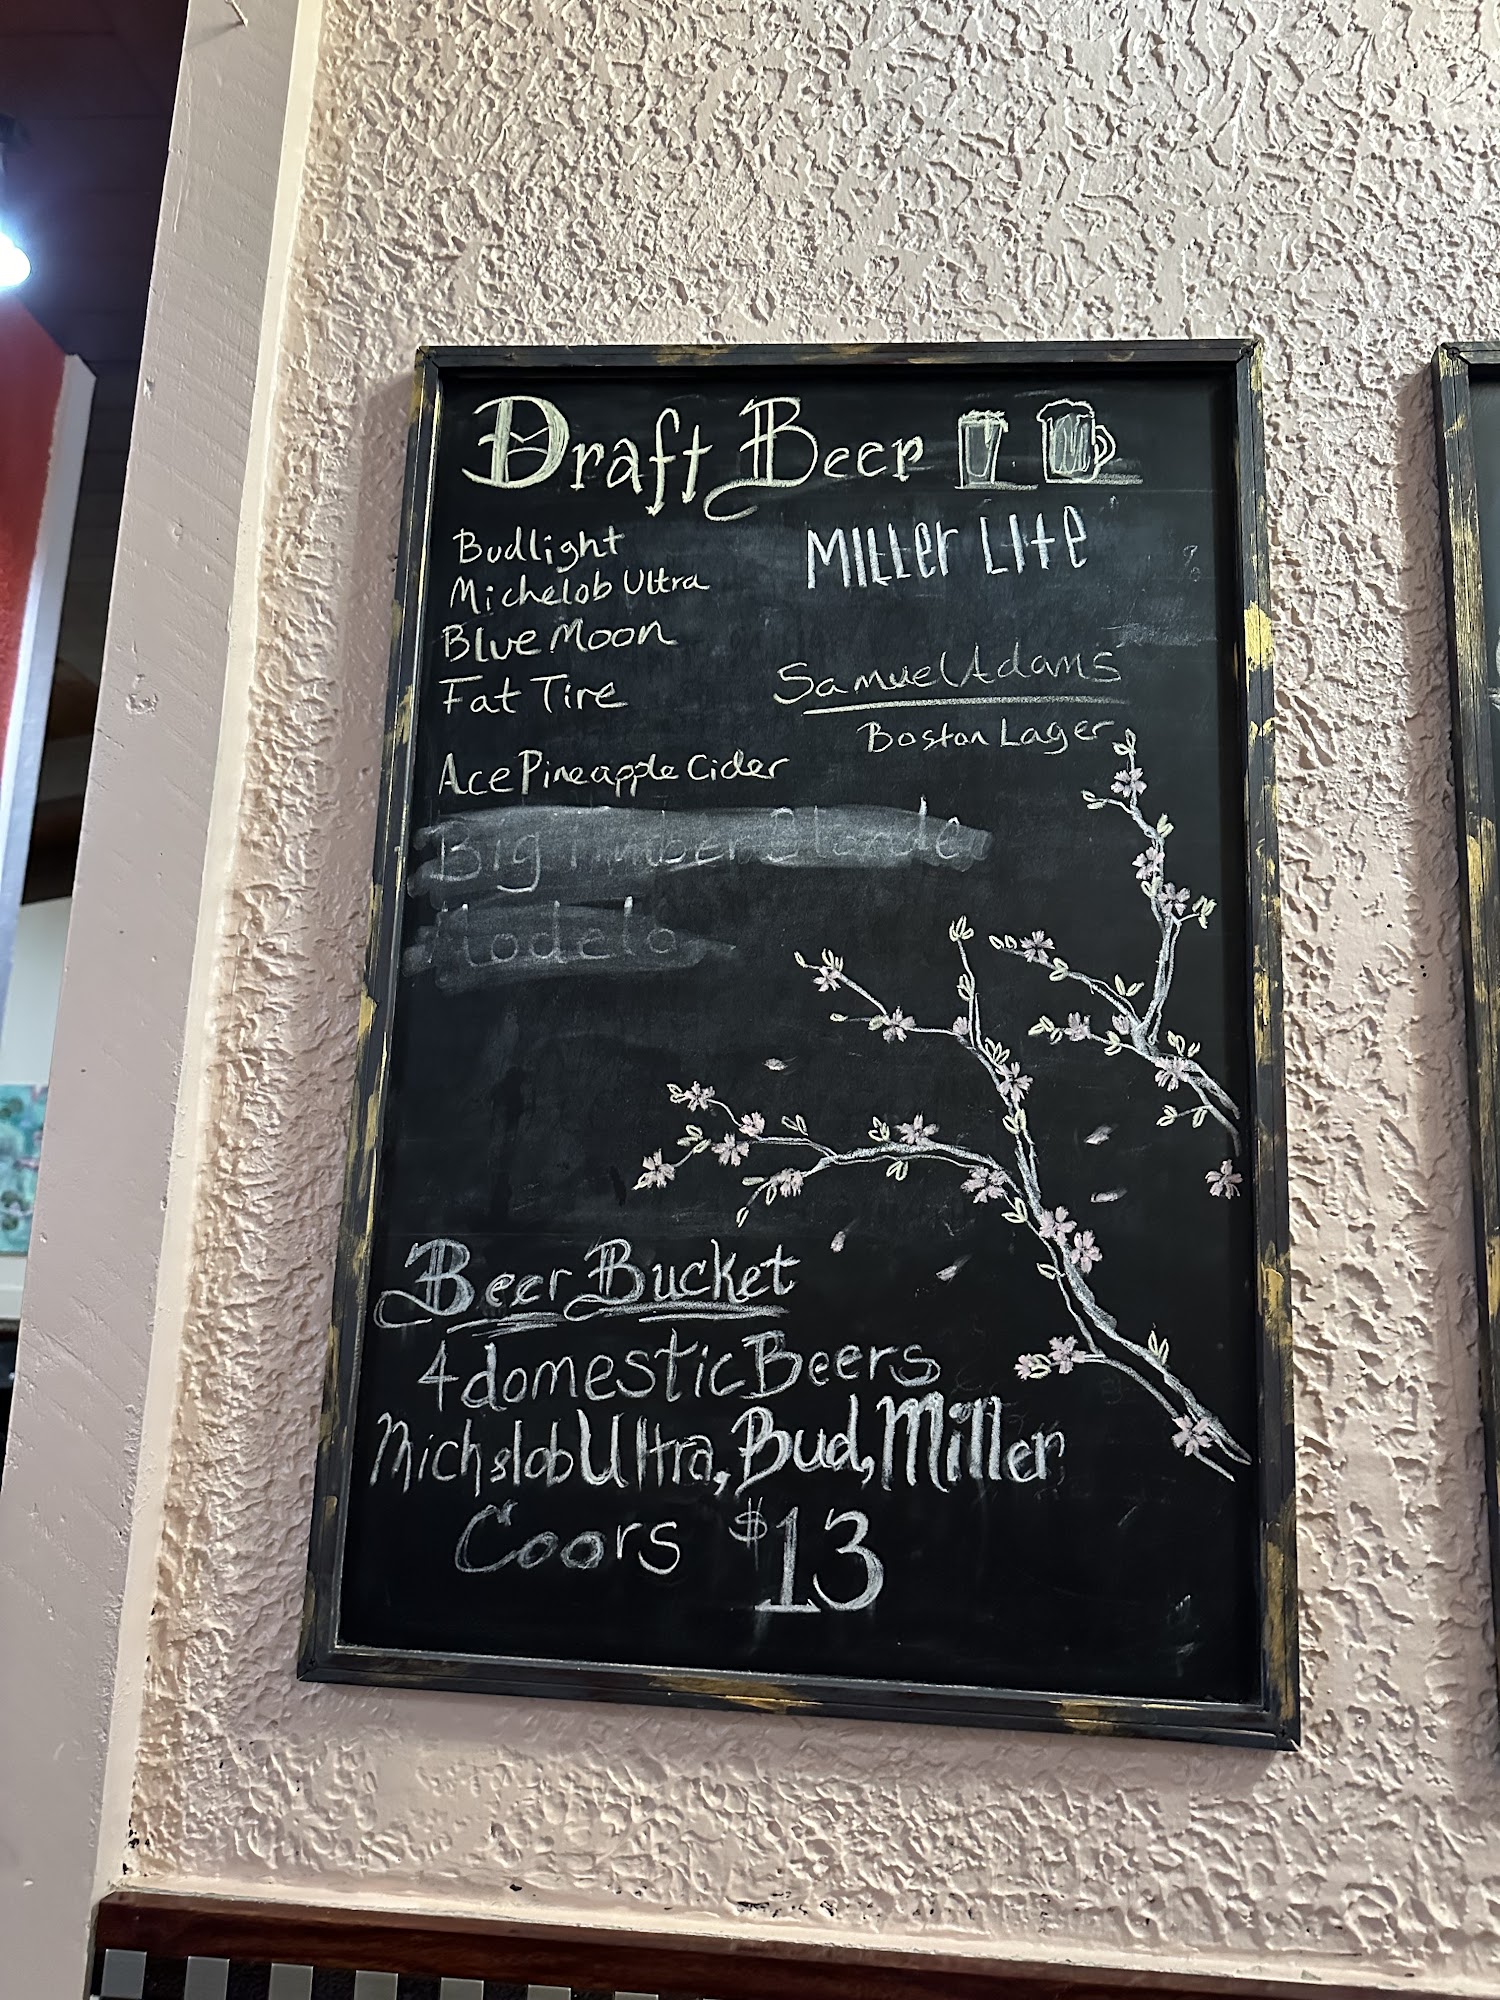 Draft Beer
Budlight
Michelob Ultra
Blue Moon
Fat Tire
Ace Pineapple Cider
Big Timber Blonde
Modelo
MILLer LIte
Samuel Adams
Boston Lager
Beer Bucket
4 domestic Beers
Michelob Ultra, Bud, Miller
Coors $13